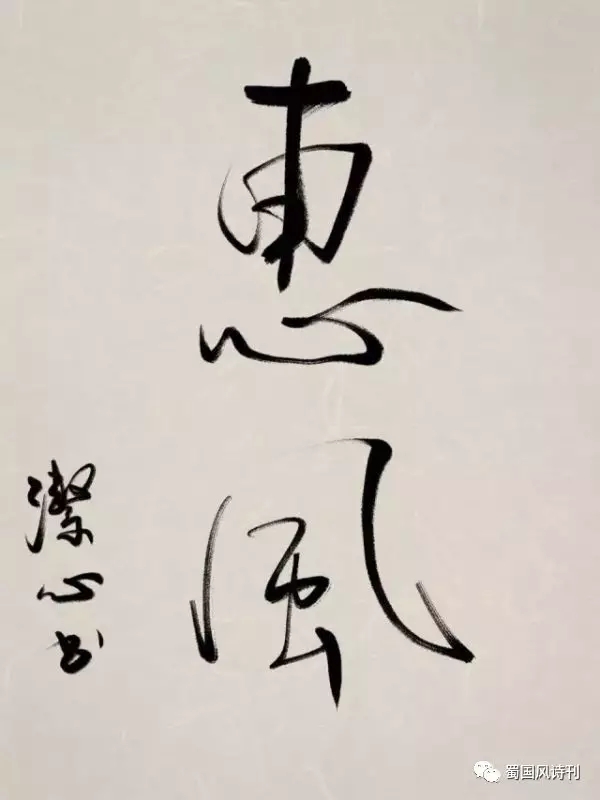 惠風
潔心书
蜀国风诗刊